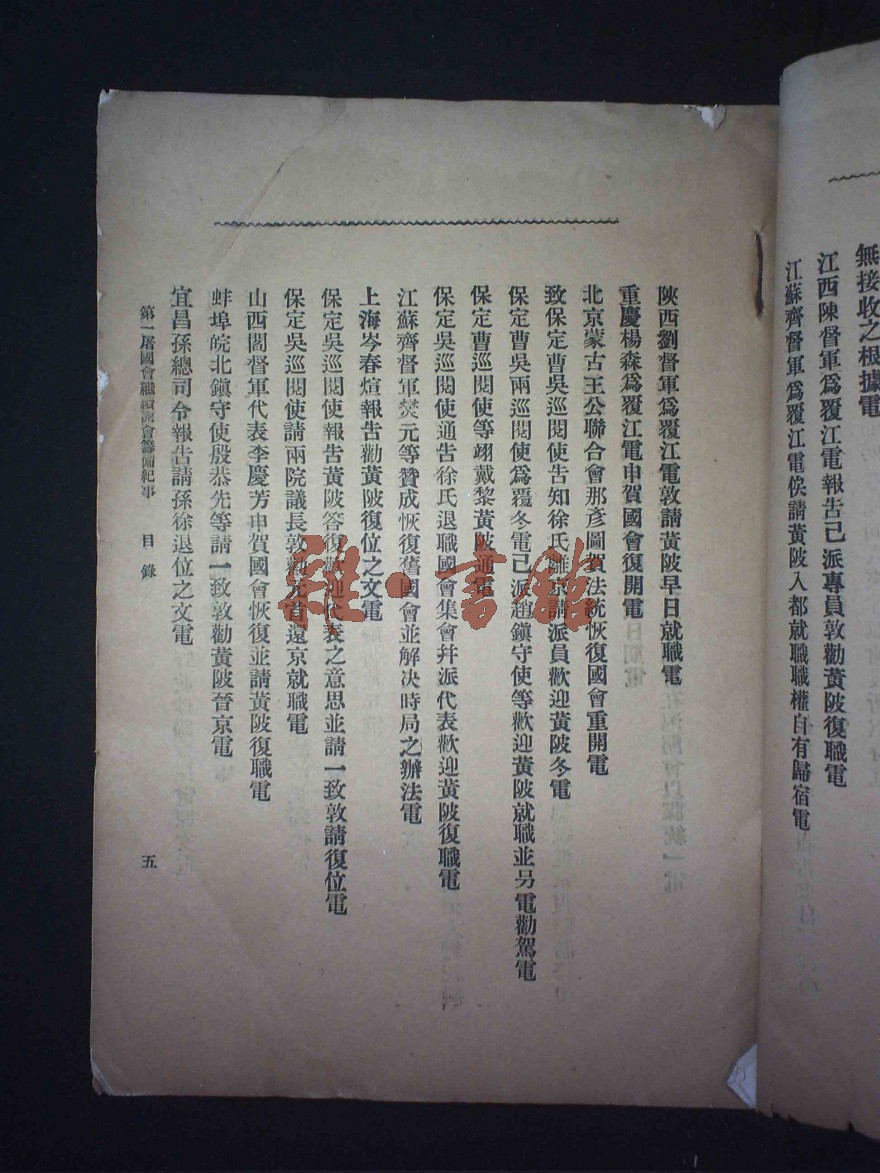 無接收之根據電
江西陳督軍爲覆江電報告已派專員敦勸黃陂復職電
江蘇齊督軍爲覆江電俟請黃陂入都就職職權自有歸宿電
陝西劉督軍爲覆江電敦請黃陂早日就職電
重慶楊森爲覆江電申賀國會復開電
北京蒙古王公聯合會那彥圖賀法統恢復國會重開電
致保定曹吳巡閱使告知徐氏離京請派員歡迎黃陂冬電
保定曹吳兩巡閱使爲覆冬電已派趙鎮守使等歡迎黃陂就職並另電勸駕電
保定曹巡閱使等翊戴黎黃陂通電
保定吳巡閱使通告徐氏退職國會集會幷派代表歡迎黃陂復職電
江蘇齊督軍燮元等贊成恢復舊國會並解决時局之辦法電
上海岑春煊報告勸黃陂復位之文電
保定吳巡閱使報告黃陂答復歡迎代表之意思並請一致敦請復位電
保定吳巡閱使請兩院議長敦勸元首還京就職電
山西閻督軍代表李慶芳申賀國會恢復並請黃陂復職電
蚌埠皖北鎮守使殷恭先等請一致敦勸黃陂晉京電
宜昌孫總司令報告請孫徐退位之文電
第一屆國會繼續開會籌備紀事 目錄 五
雜·書館